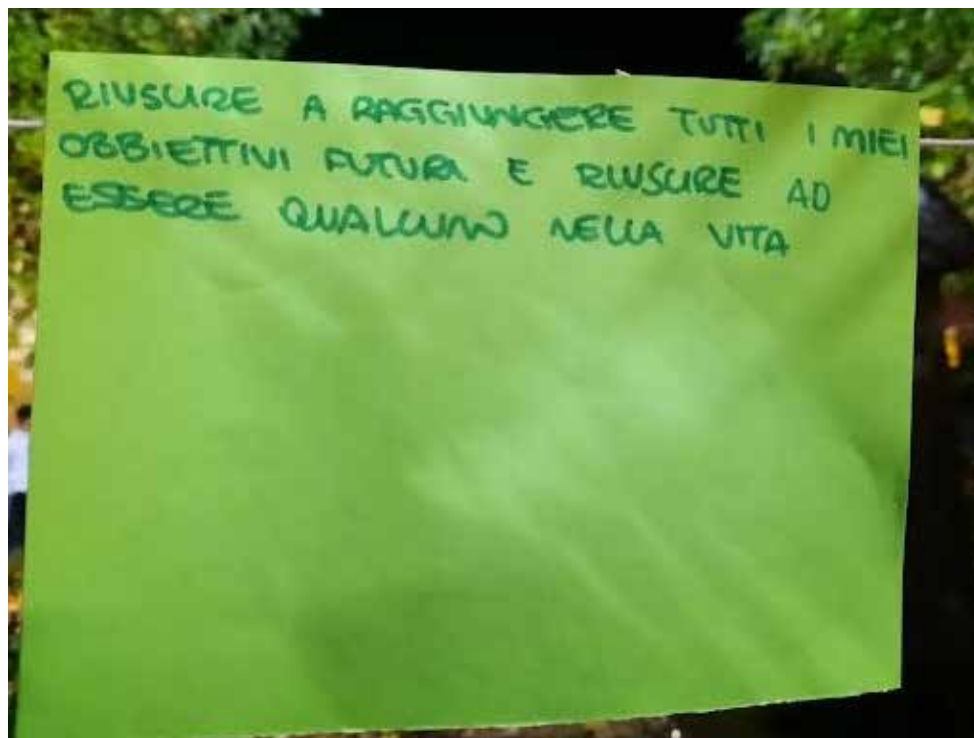 RIUSCIRE A RAGGIUNGERE TUTTI I MIEI
OBBIETTIVI FUTURI E RIUSCIRE AD
ESSERE QUALCUNO NELLA VITA